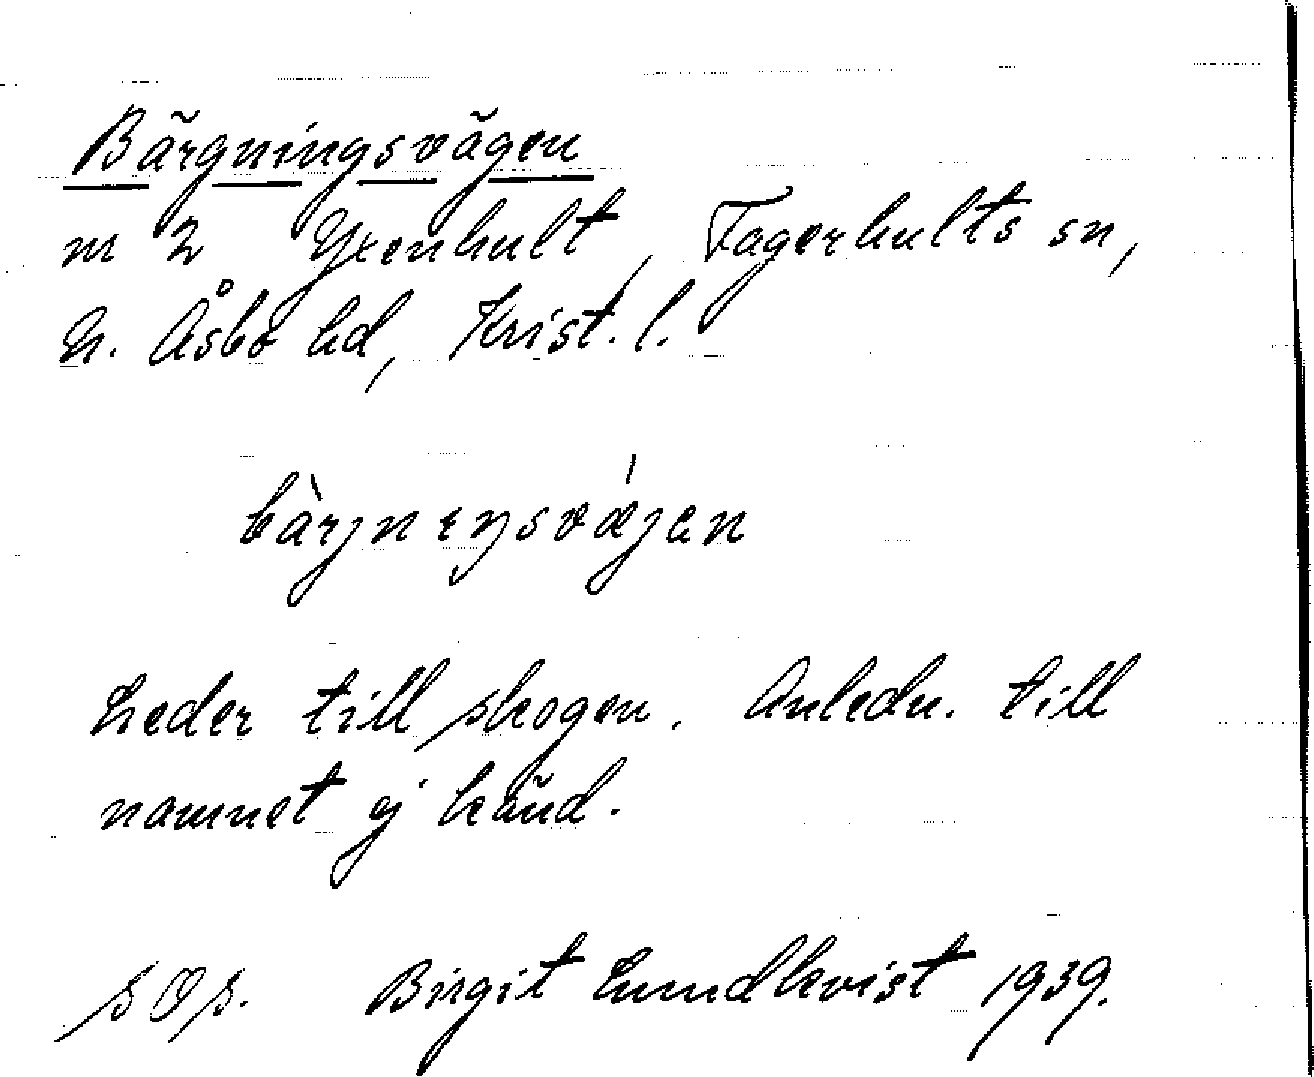 Bärgningsvägen
m 2 Yxenhult, Fagerhults sn,
N. Åsbo hd, Krist. l.
bàrjnɩŋsvǽjen
Leder till skogen. Anledn. till
namnet ej känd.
Birgit Lundkvist 1939.